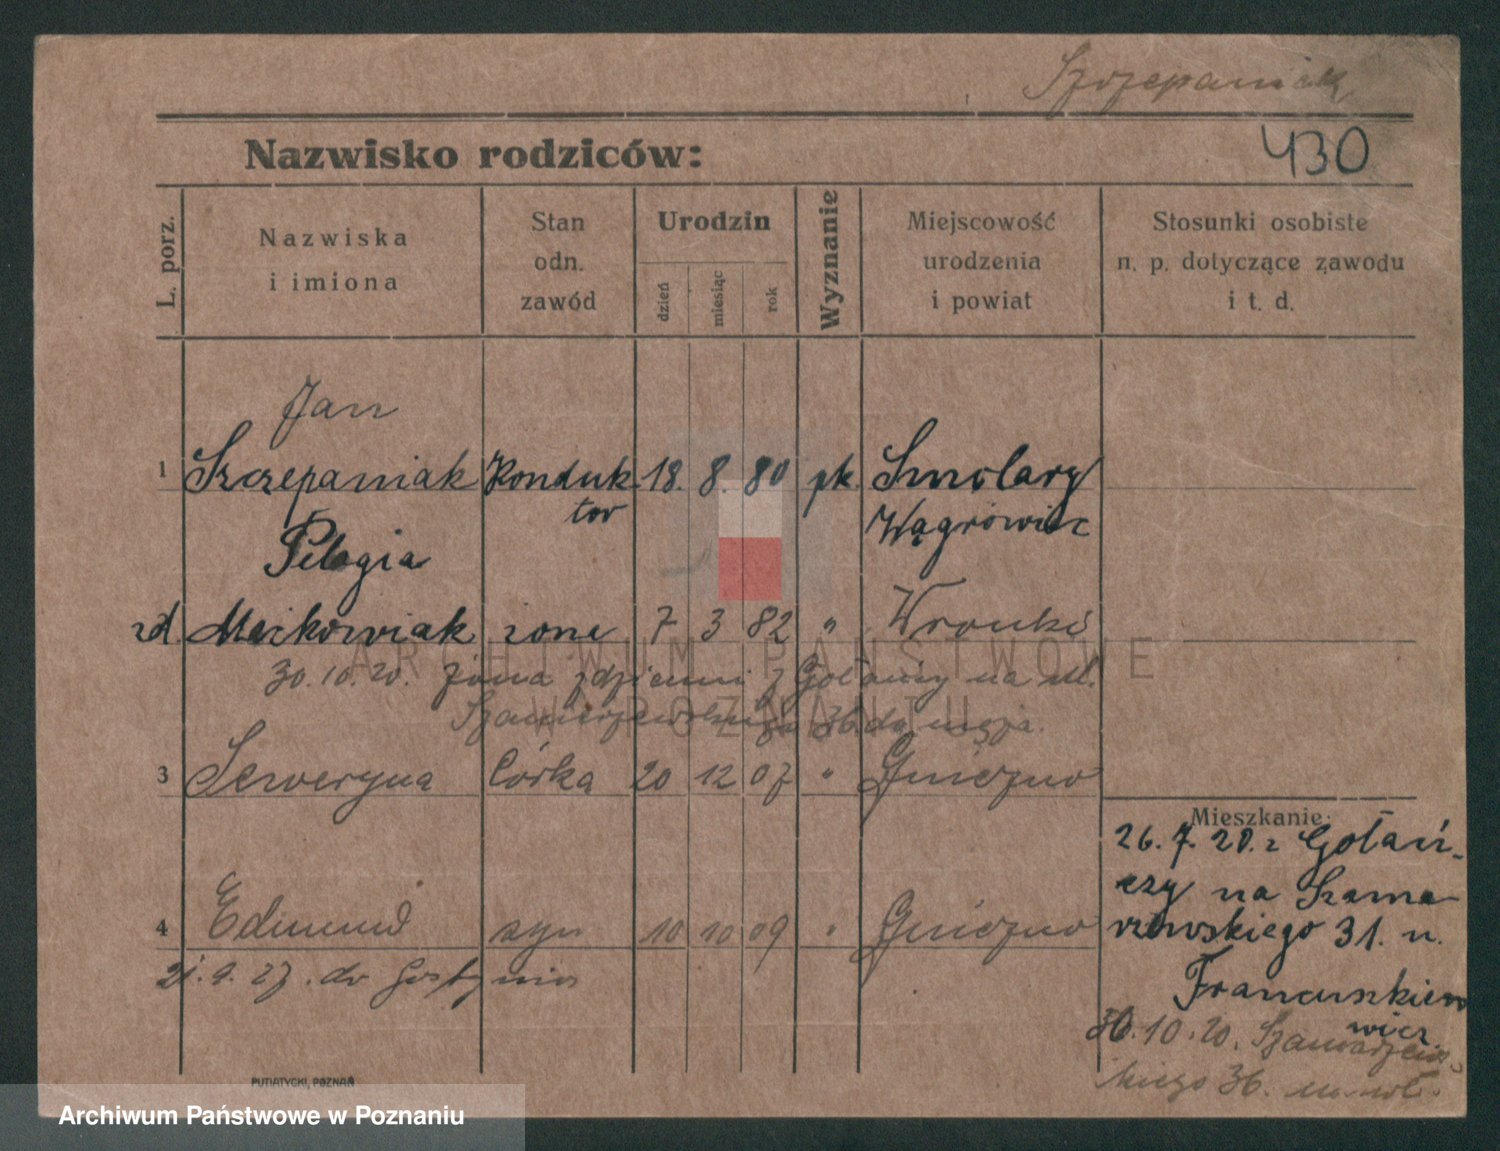 Szczepaniak
430
Nazwisko rodziców:
L. porz.
Nazwiska
i imiona
Stan
odn.
zawód
Urodzin
dzień
miesiąc
rok
Wyznanie
Miejscowość
urodzenia
i powiat
Stosunki osobiste
n. p. dotyczące zawodu
i t. d.
Jan
1 Szczepaniak Konduk 18. 8. 80 pk. Smolary
tor Wągrowiec
Pelagia
zd. Maćkowiak żona 7 3 82 " Wronki
30.10.20. żona z dziećmi z Gołańczy na ul.
Szamarzewskiego 36 do męża.
3 Seweryna Córka 20 12 07 " Gniezno
4 Edmund syn 10 10 09 " Gniezno
21.9.27. do Gostynia
Mieszkanie:
26. 7. 20. z Gołań-
czy na Szama-
rzewskiego 31. u.
Franciszkie
wicz
30.10.20. Szamarzews-
kiego 36.
PUTIATYCKI, POZNAŃ
ARCHIWUM PAŃSTWOWE
W POZNANIU
Archiwum Państwowe w Poznaniu